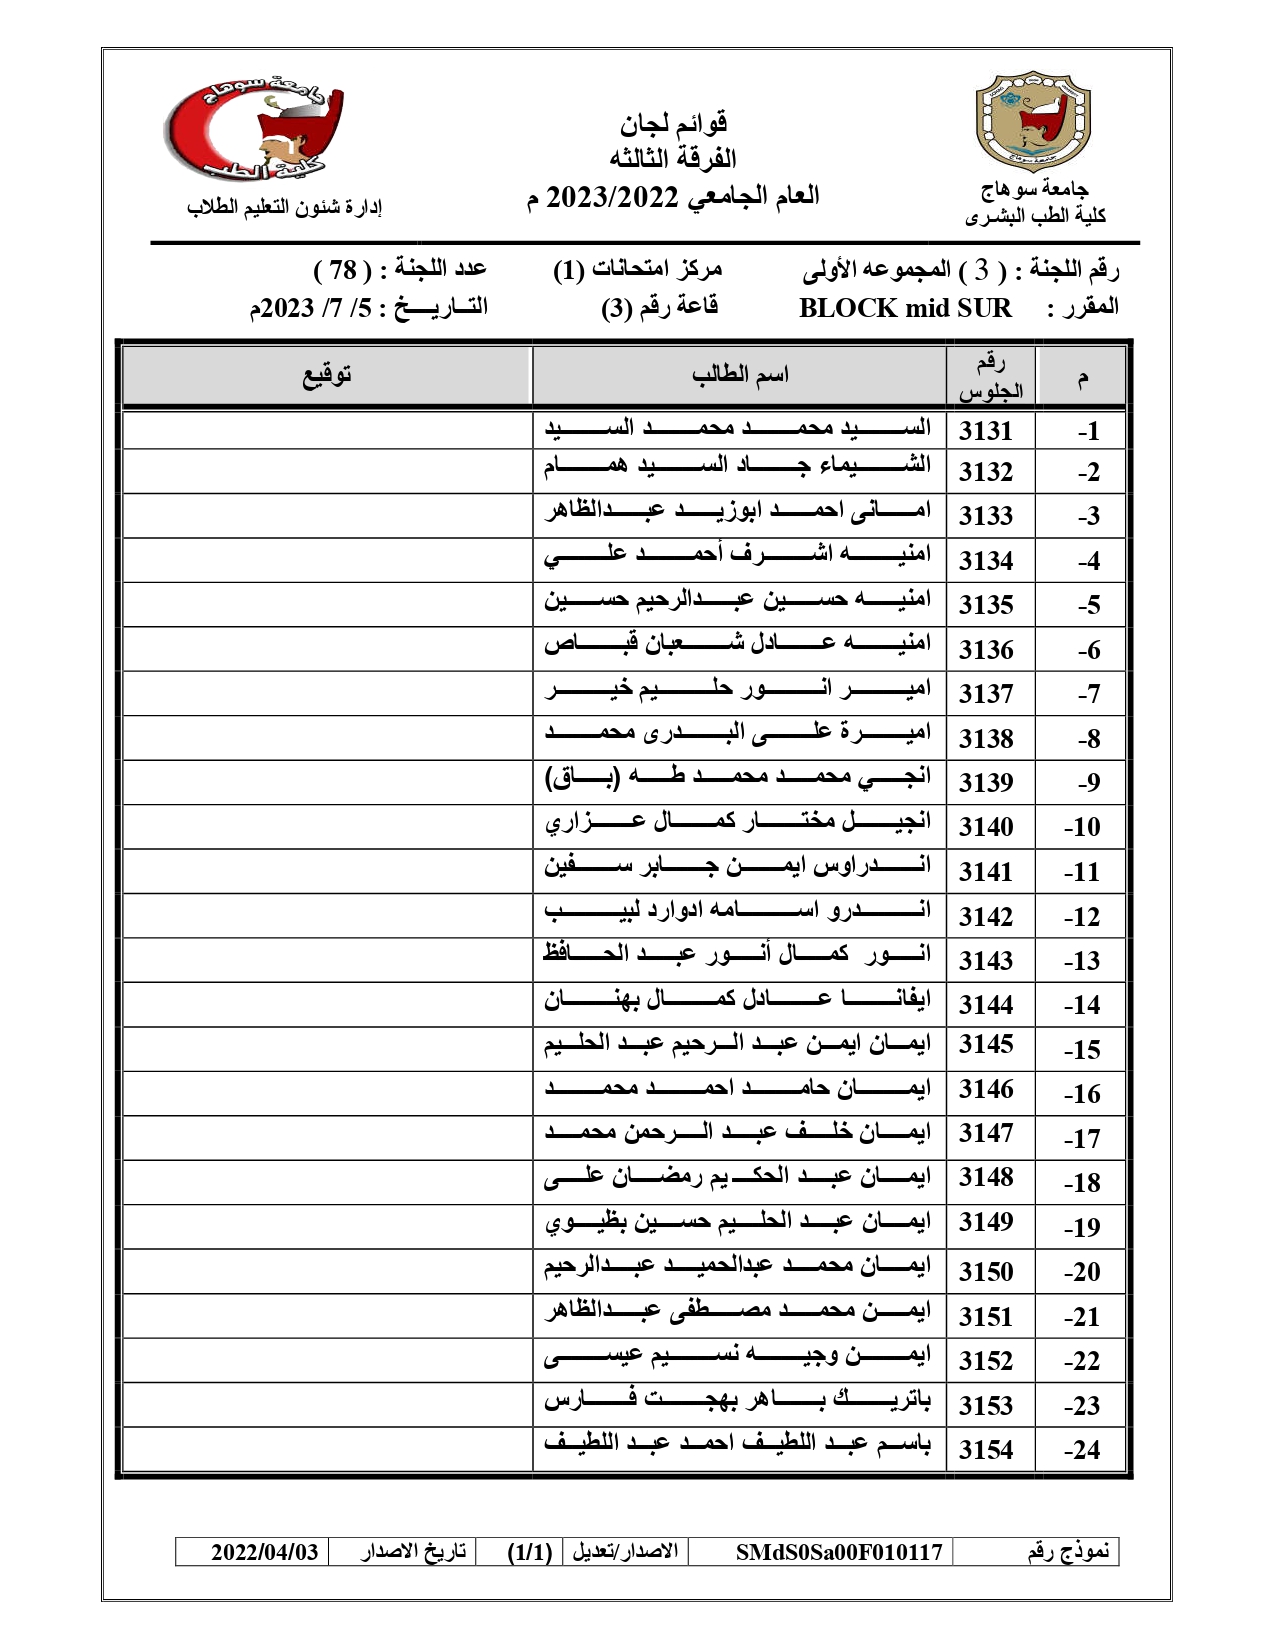 جامعة سوهاج
كلية الطب البشرى
قوائم لجان
الفرقة الثالثه
العام الجامعي 2023/2022 م
جامعة سوهاج
كلية الطب
إدارة شئون التعليم الطلاب
رقم اللجنة : ( 3 ) المجموعه الأولى مركز امتحانات (1) عدد اللجنة : ( 78 )
المقرر : BLOCK mid SUR قاعة رقم (3) التاريخ : 5/ 7/ 2023م
م رقم الجلوس اسم الطالب توقيع
1- 3131 السيد محمد محمد السيد
2- 3132 الشيماء جاد السيد همام
3- 3133 امانى احمد ابوزيد عبدالظاهر
4- 3134 امنيه اشرف أحمد علي
5- 3135 امنيه حسين عبدالرحيم حسين
6- 3136 امنيه عادل شعبان قباص
7- 3137 امير انور حليم خير
8- 3138 اميرة على البدرى محمد
9- 3139 انجي محمد محمد طه (باق)
10- 3140 انجيل مختار كمال عزاري
11- 3141 اندراوس ايمن جابر سفين
12- 3142 اندرو اسامه ادوارد لبيب
13- 3143 انور كمال أنور عبد الحافظ
14- 3144 ايفانا عادل كمال بهنان
15- 3145 ايمان ايمن عبد الرحيم عبد الحليم
16- 3146 ايمان حامد احمد محمد
17- 3147 ايمان خلف عبد الرحمن محمد
18- 3148 ايمان عبد الحكيم رمضان على
19- 3149 ايمان عبد الحليم حسين بظيوي
20- 3150 ايمان محمد عبدالحميد عبدالرحيم
21- 3151 ايمن محمد مصطفى عبدالظاهر
22- 3152 ايمن وجيه نسيم عيسى
23- 3153 باتريك باهر بهجت فارس
24- 3154 باسم عبد اللطيف احمد عبد اللطيف
نموذج رقم SMdS0Sa00F010117 الاصدار/تعديل (1/1) تاريخ الاصدار 2022/04/03